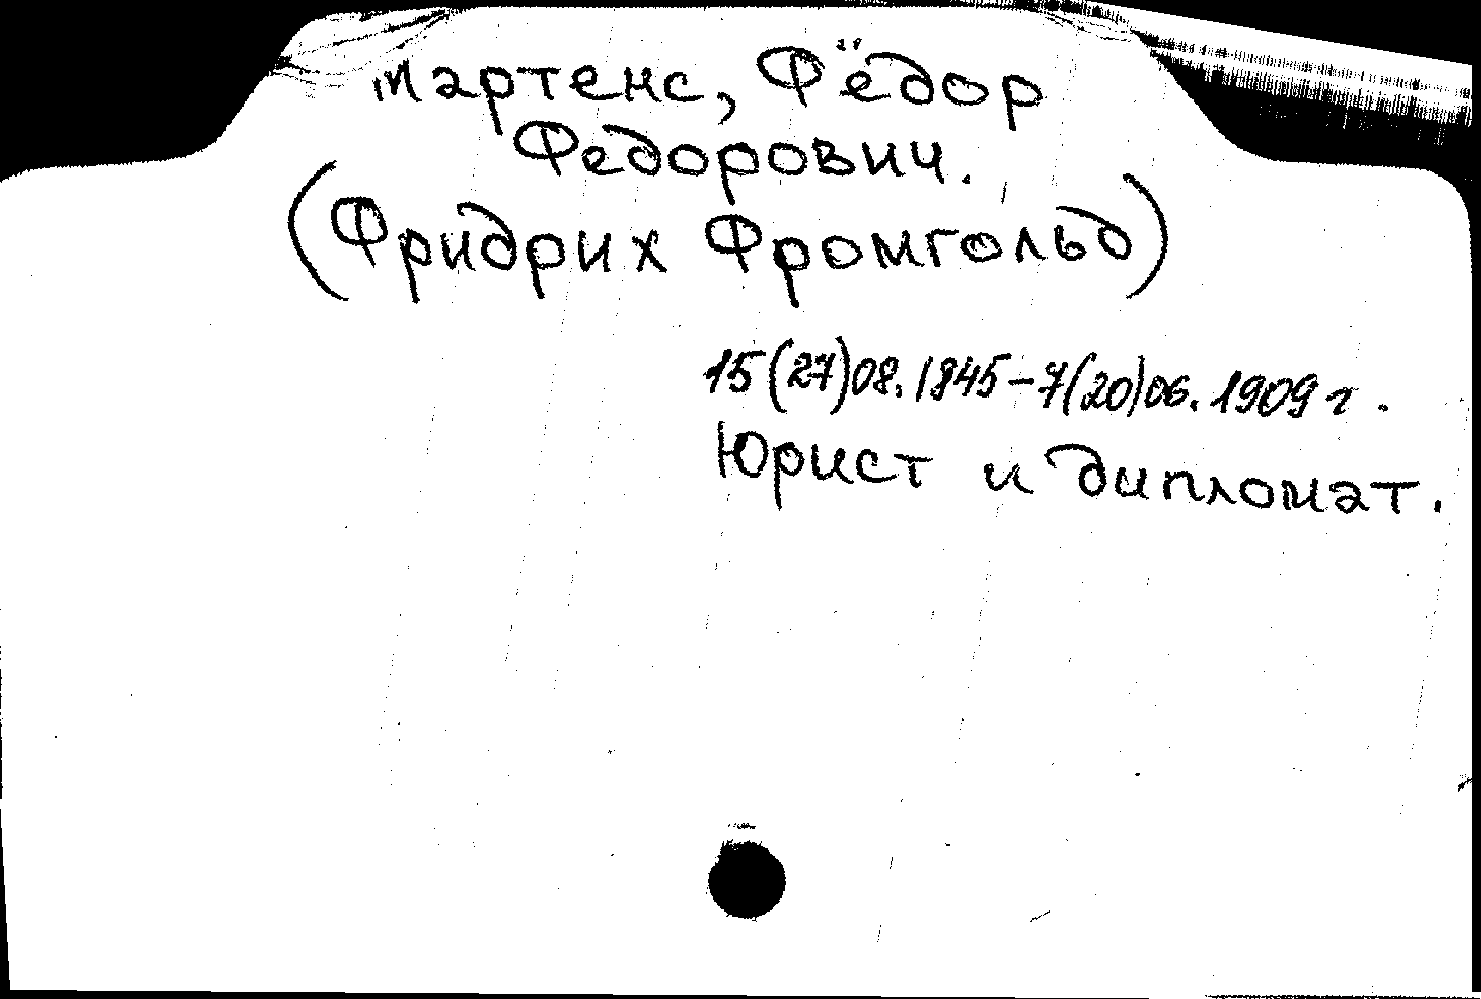 Мартенс, Фёдор
Федорович.
(Фридрих Фромгольд)
15(27)08.1845-7(20)06.1909г.
Юрист и дипломат.